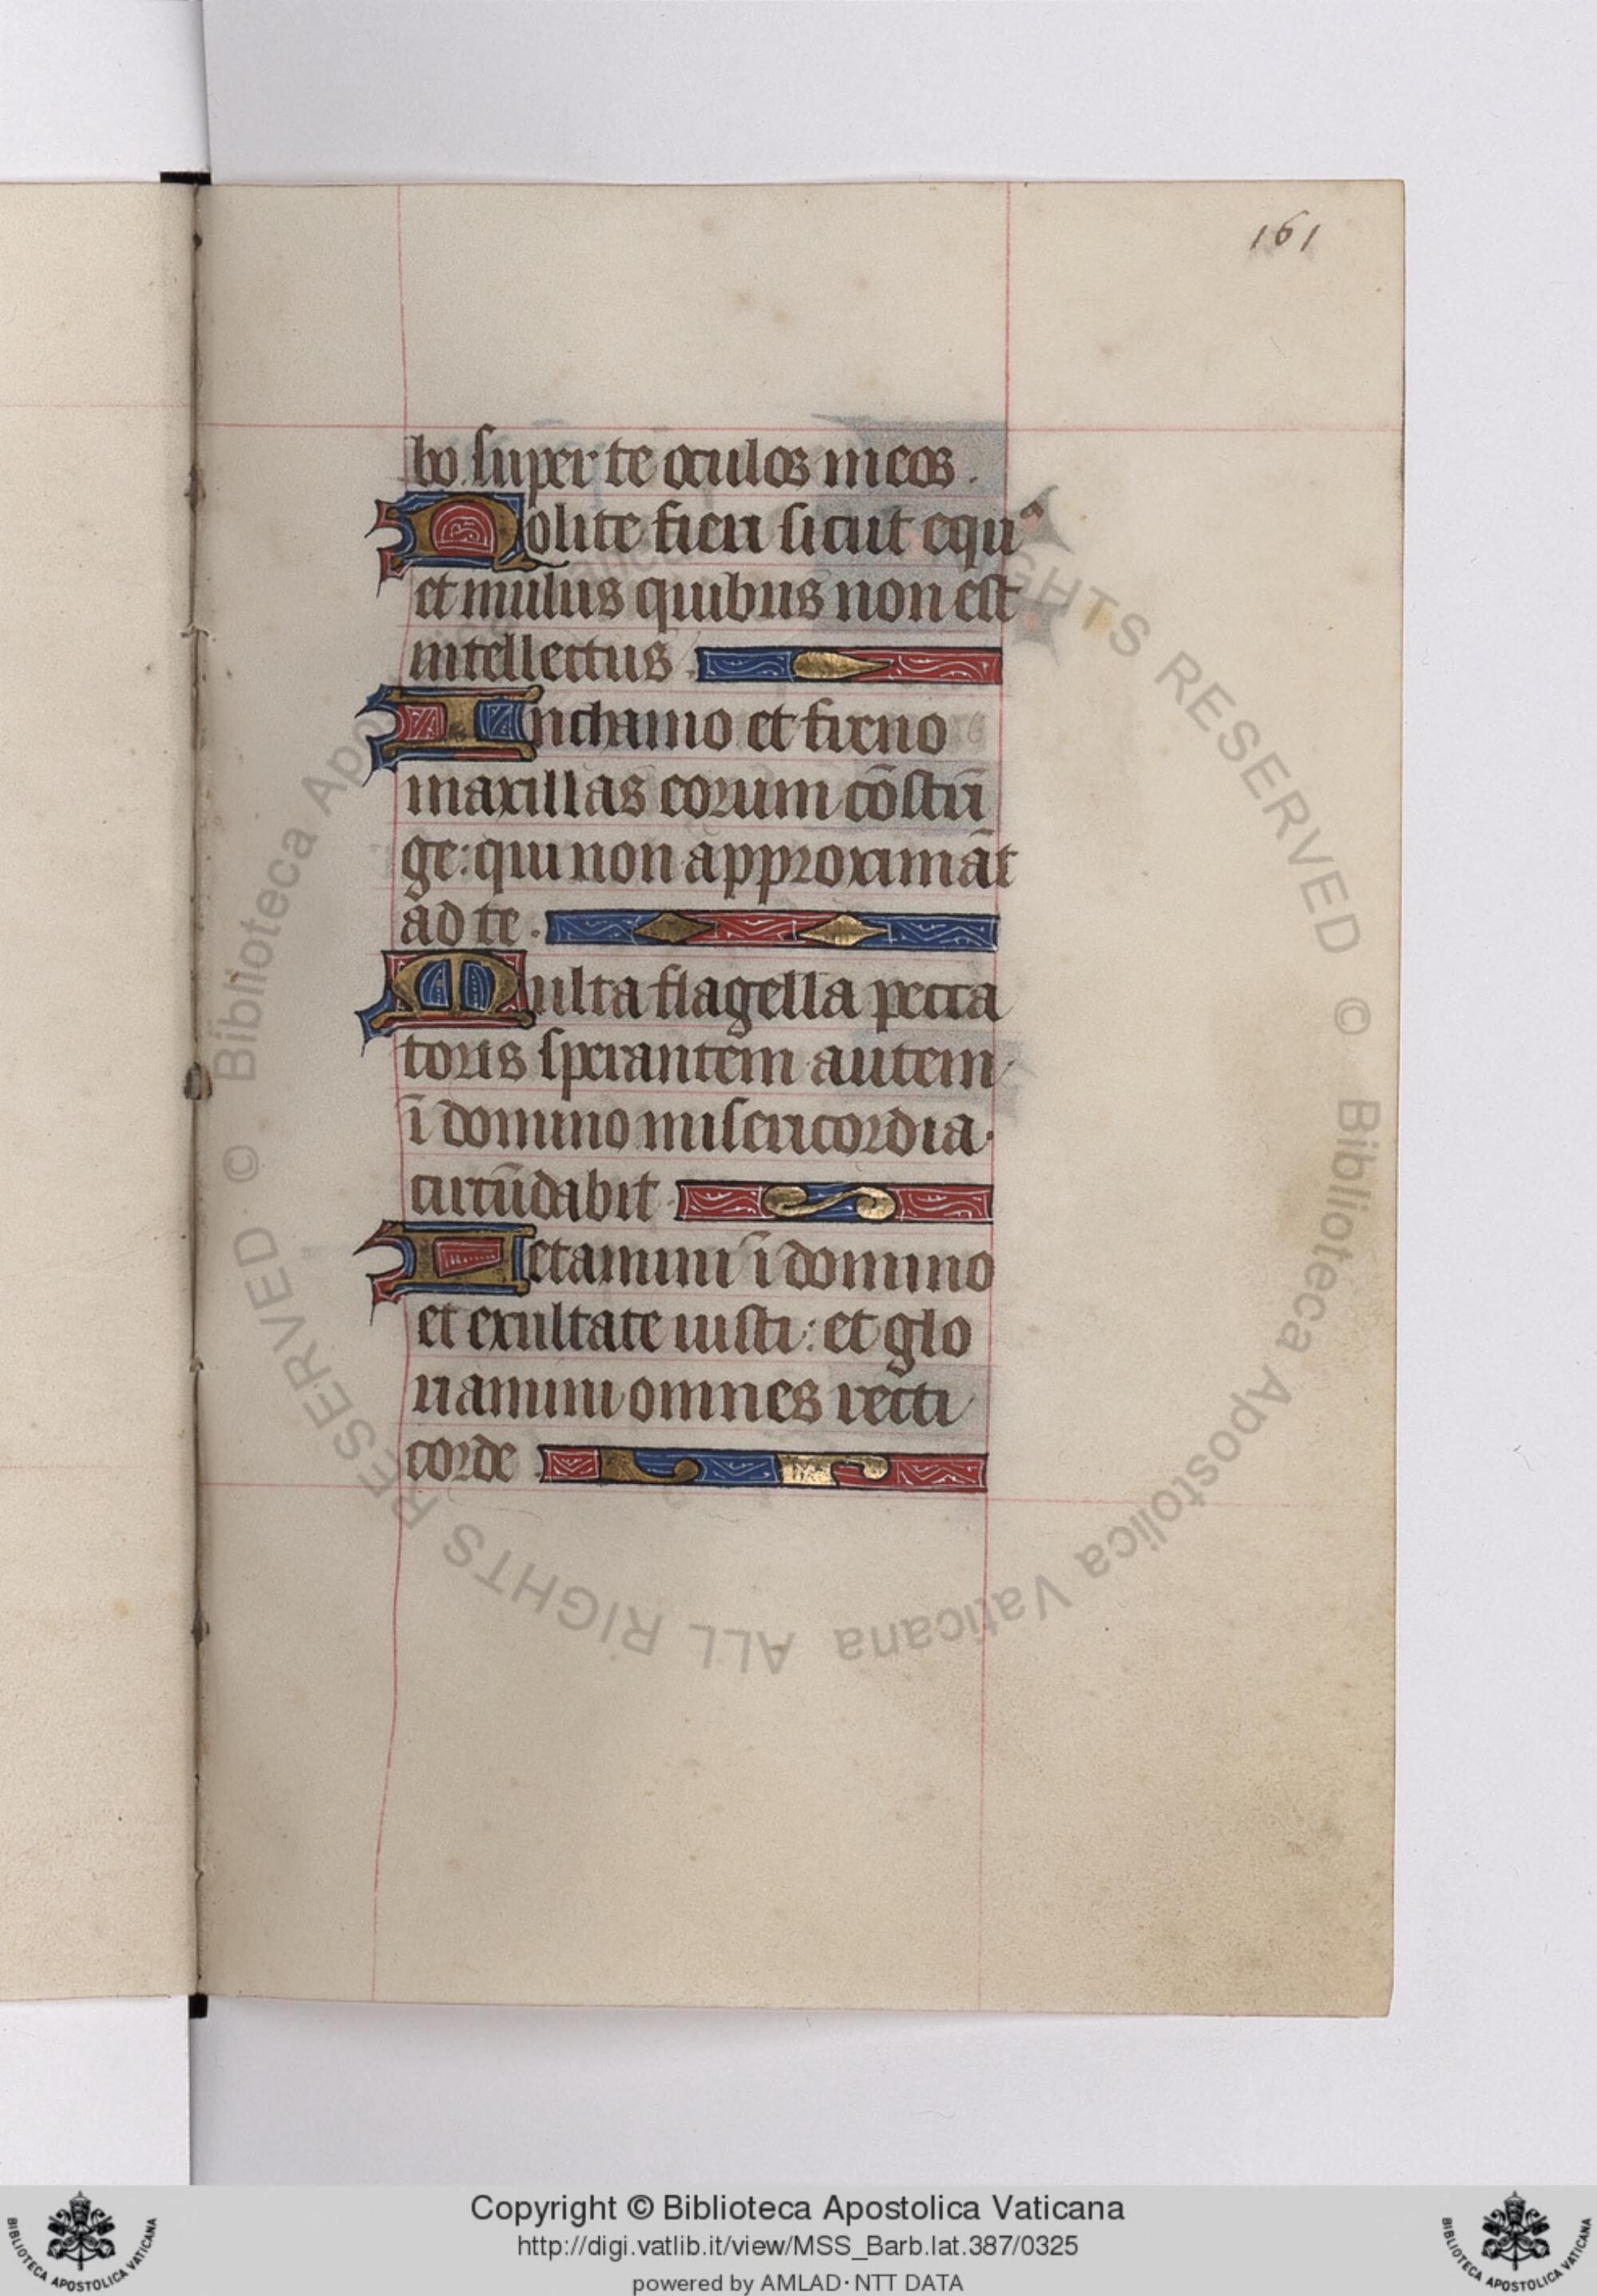 161
bo super te oculos meos.
Nolite fieri sicut equꝰ
et mulus quibus non est
intellectus.
In chamo et freno
maxillas eorum cōstrī
ge: qui non approximāt
ad te.
Multa flagella pecca
toris sperantem autem
ī domino misericordia
circūdabit.
Letamini ī domino
et exultate iusti: et glo
riamini omnes recti
corde.
© Biblioteca Apostolica Vaticana ALL RIGHTS RESERVED
Copyright © Biblioteca Apostolica Vaticana
http://digi.vatlib.it/view/MSS_Barb.lat.387/0325
powered by AMLAD·NTT DATA
BIBLIOTECA APOSTOLICA VATICANA
BIBLIOTECA APOSTOLICA VATICANA